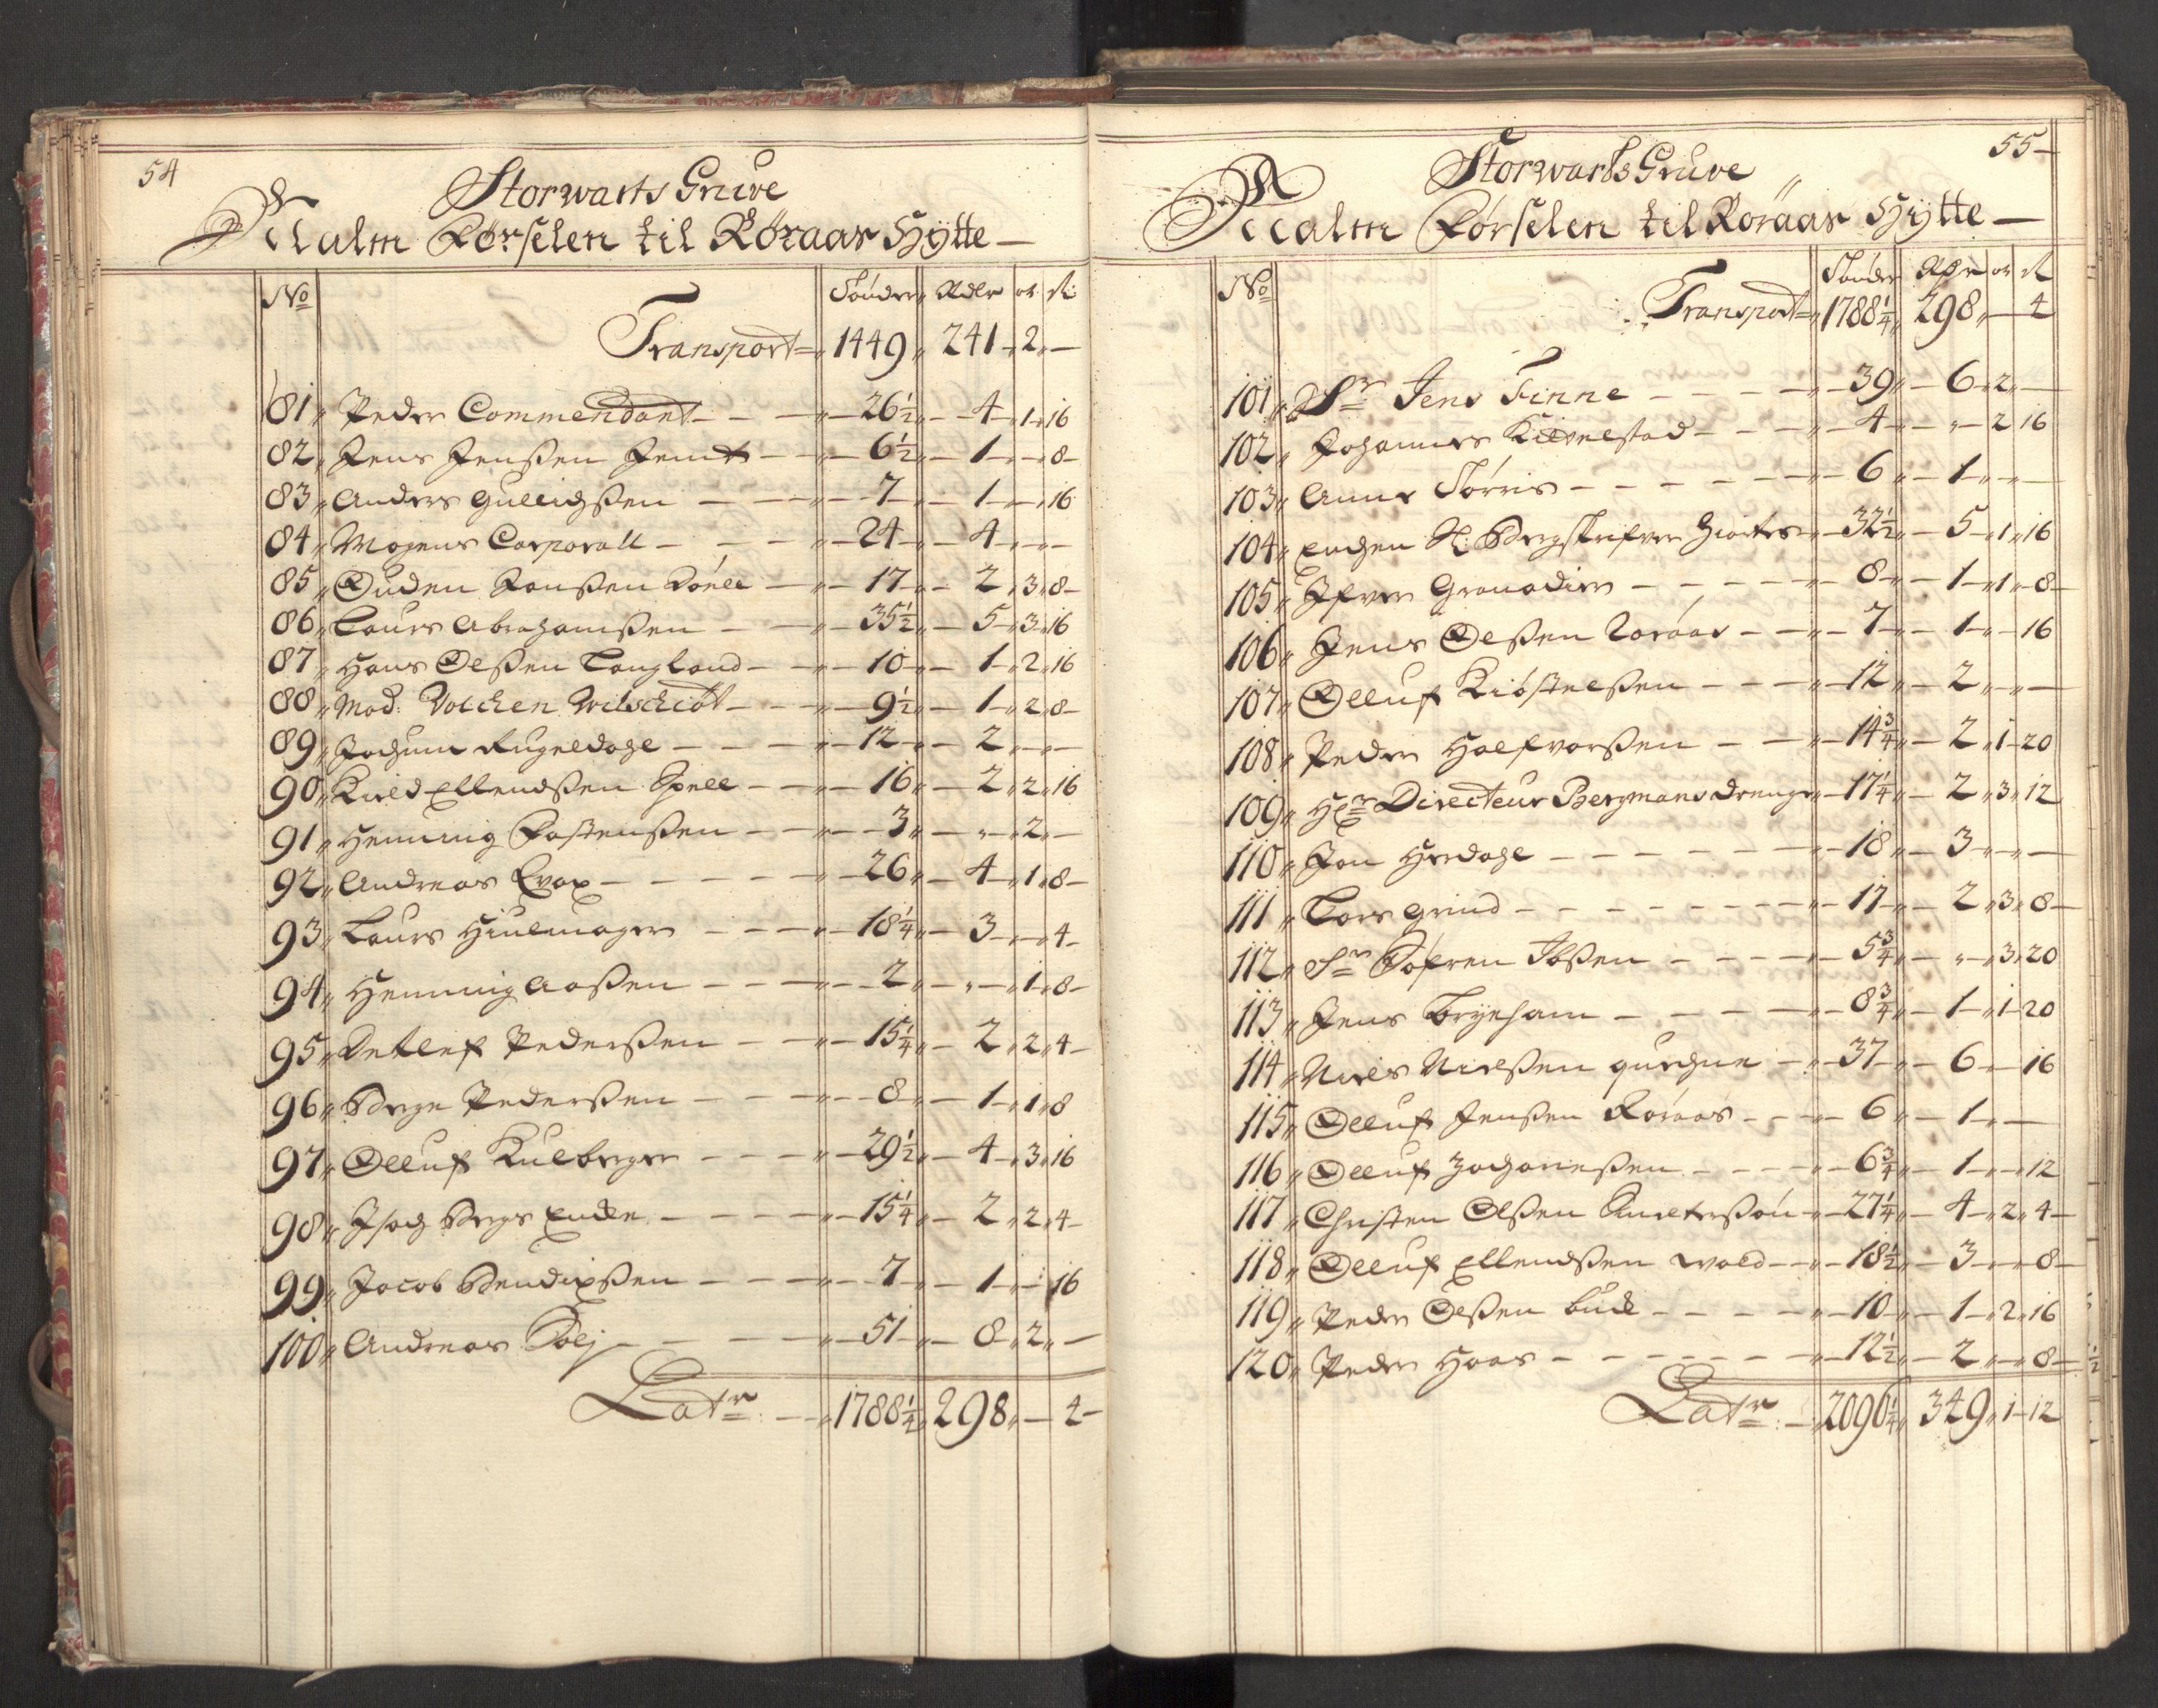 54
Storwarts Gruve
Malm Førselen til Røraas Hÿtte —
No Tønder Rdlr ort s:
Transport 1449 241 2 —
81 Peder Commendant 26½ 4 1 16
82 Jens Jenßen Jemt 6½ 1 — 8
83 Anders Gullichßen 7 1 — 16
84 Mogens Corporall 24 4 — —
85 Ouden Jonßen 17 2 3 8
86 Laurs Abrahamßen 35½ 5 3 16
87 Hans Olßen Langland 10 1 2 16
88 Mad: Volchen Wilschiøt 9½ 1 2 8
89 Jochum Rugeldahl 12 2 — —
90 Kield Ellendßen Spell 16 2 2 16
91 Henning Postenßen 3 — 2 —
92 Andreas Qvax 26 4 1 8
93 Laurs Hiulmager 18¼ 3 — 4
94 Henning Aaßen 2 — 1 8
95 Detlef Pederßen 15¼ 2 2 4
96 Berge Pederßen 8 1 1 8
97 Olluf Kulberger 29½ 4 3 16
98 Isach Bergs Encke 15¼ 2 2 4
99 Jacob Bendixßen 7 1 — 16
100 Andreas Dolj 51 8 2 —
Latr: 1788¼ 298 — 4
55
Storwarts Gruve
Malm Førselen til Røraas Hÿtte —
No Tønder Rdr ort s
Transport 1788¼ 298 — 4
101 Sr Jens Finne 39 6 2 —
102 Johannes Kistelstad 4 — 2 16
103 Anne Tørris 6 1 — —
104 Enchen Sl: Bergskrifver Hiorters 32½ 5 1 16
105 Ifver Granadier 8 1 1 8
106 Jens Olßen Roraas 7 1 — 16
107 Olluf Kiøstelßen 12 2 — —
108 Peder Halfvorßen 14¾ 2 1 20
109 Hr Directeur Bergmans drenge 17¼ 2 3 12
110 Jon Herdahl 18 3 — —
111 Lars Grind 17 2 3 8
112 Sr Søfren Ibßen 5¾ — 3 20
113 Jens Brynham 8¾ 1 1 20
114 Niels Nielßen 37 6 — 16
115 Olluf Jenßen Roraas 6 1 — —
116 Olluf Zachariesßen 6¾ 1 — 12
117 Christen Olßen 27¼ 4 2 4
118 Olluf Ellendßen Wold 18½ 3 — 8
119 Peder Olßen Bude 10 1 2 16
120 Peder Haas 12½ 2 — 8
Latr: 2096¼ 349 1 12